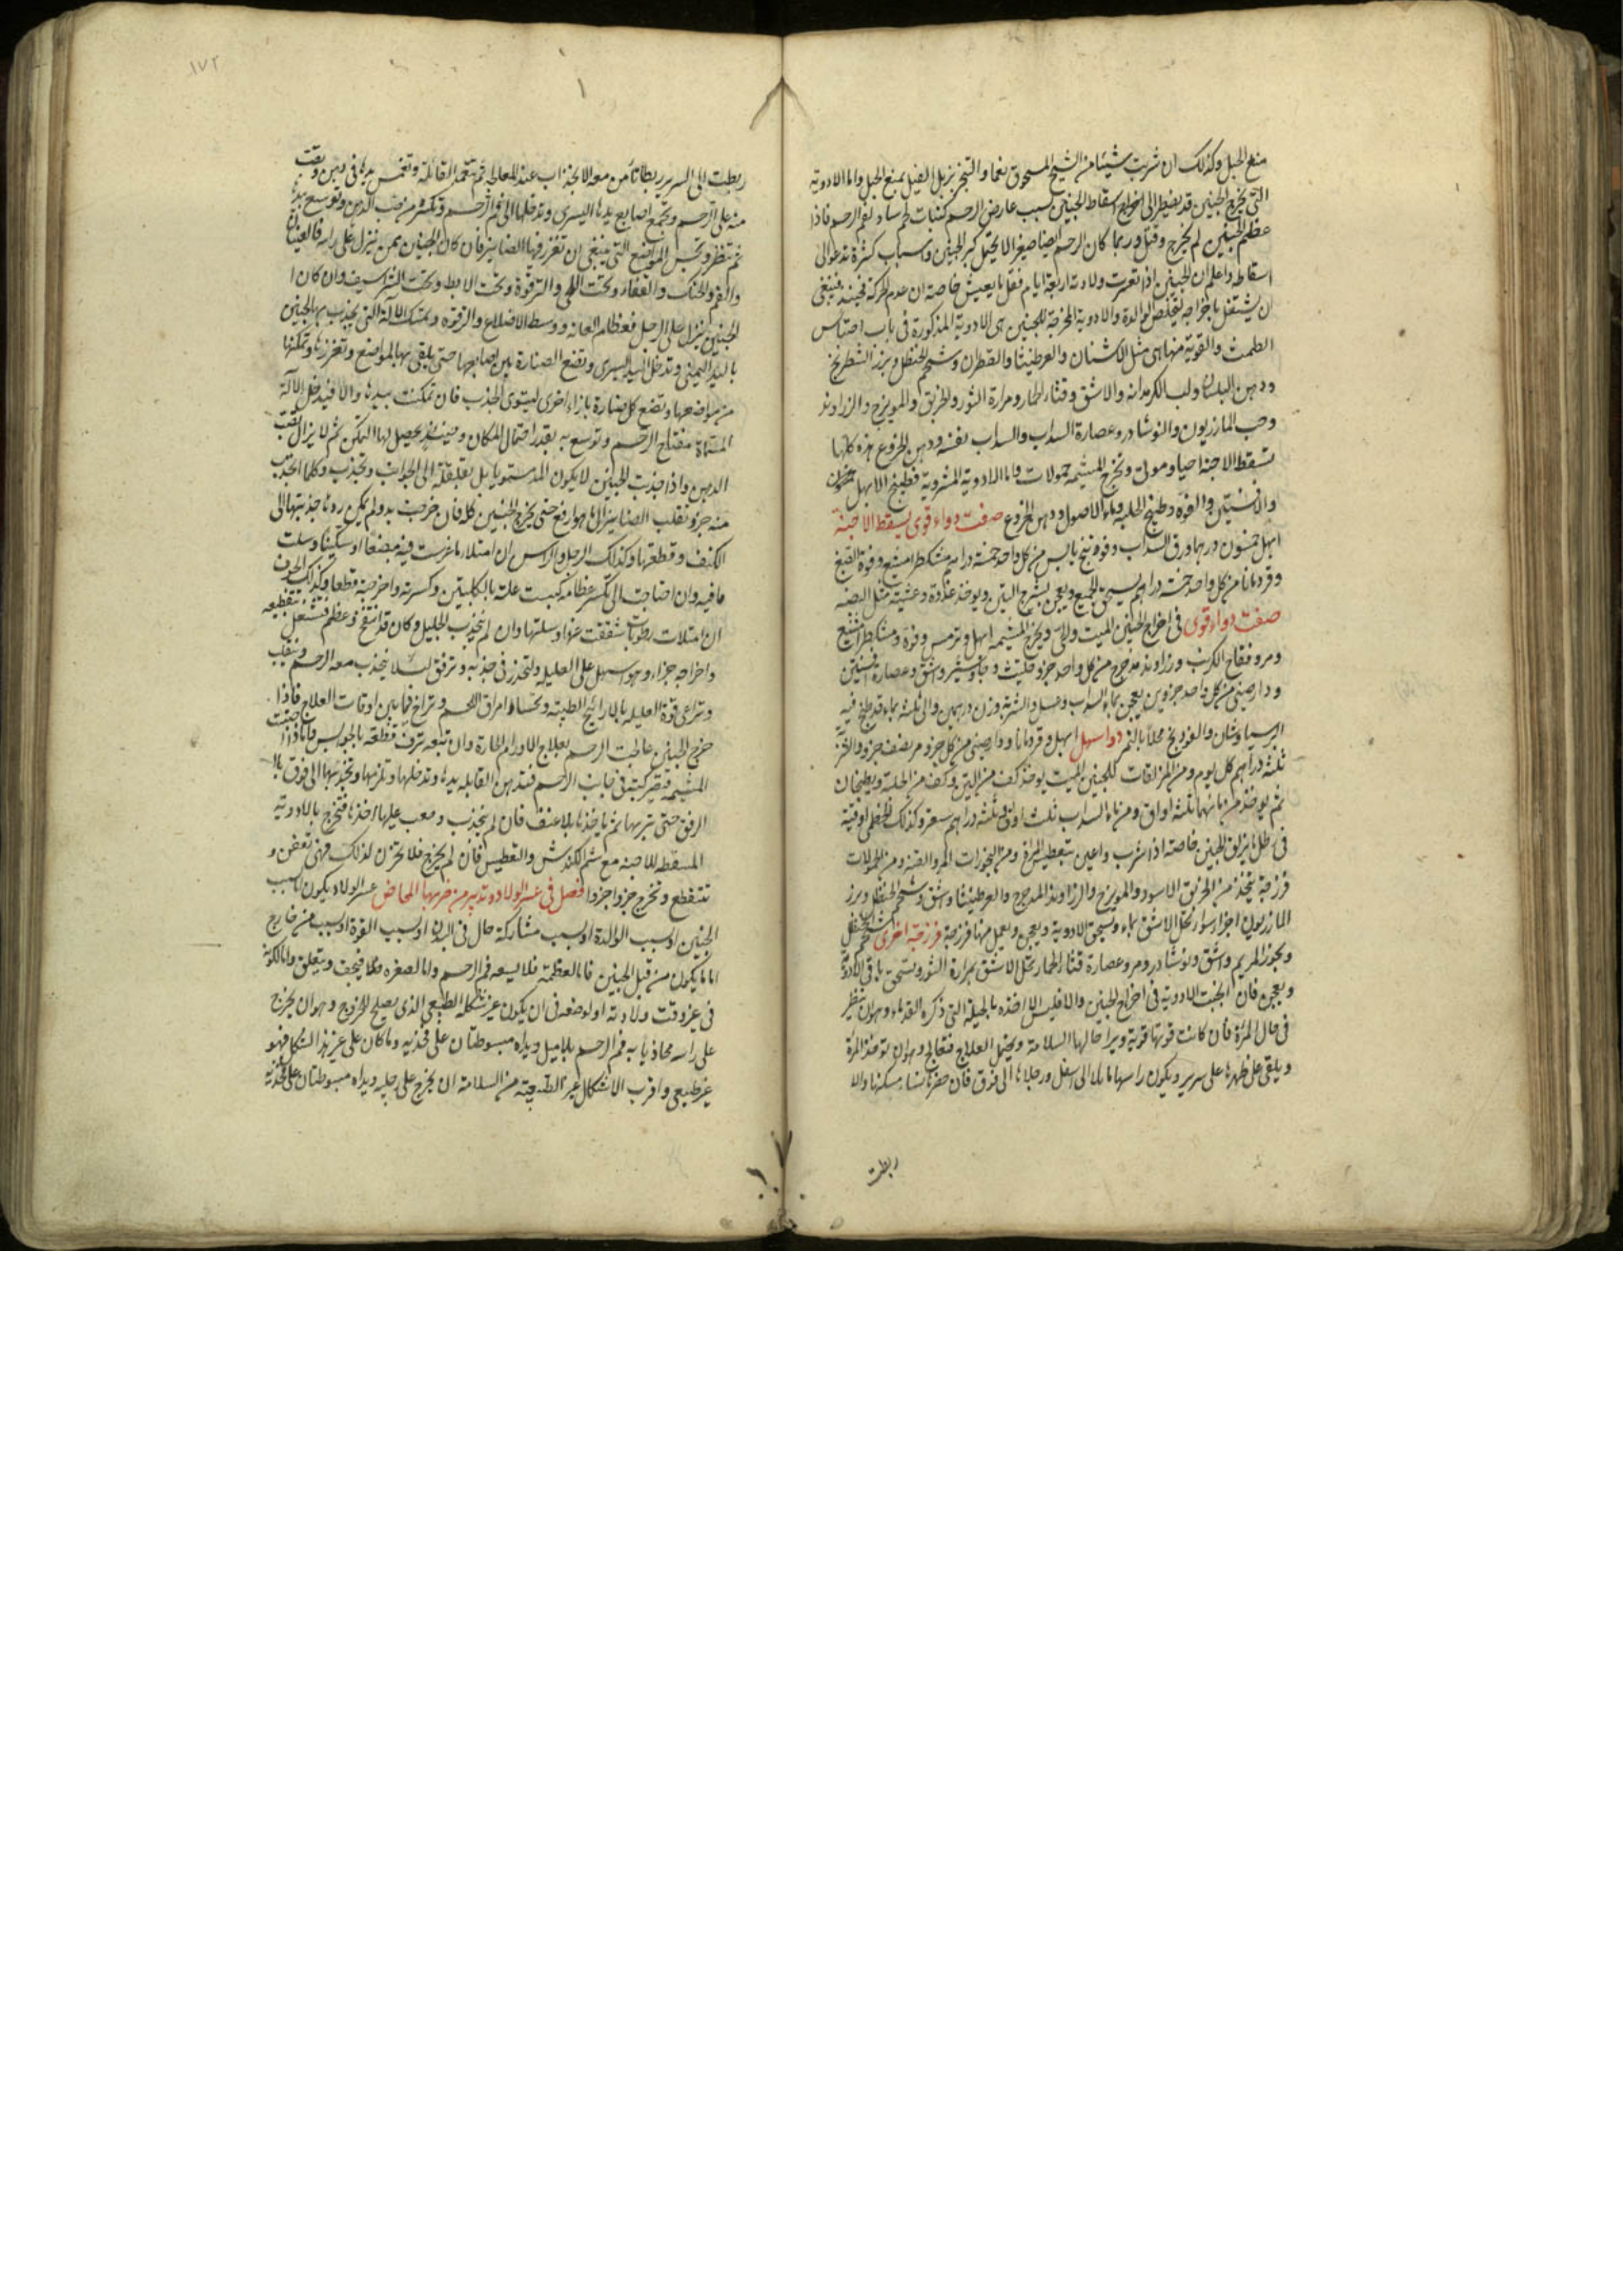 منع الحبل وكذلك ان شربت شيئا من الشيح المسحوق نعما والتبخر بزبل الفيل يمنع الحبل واما الادوية
التى تخرج الجنين قد يضطر الى اخراج واسقاط الجنين بسبب عارض الرحم كنبات لحم ساد لفم الرحم فاذا
عظم الجنين لم يخرج وقتل وربما كان الرحم ايضا صغيرا لا يحتمل كبر الجنين واسباب كثيرة تدعو الى
اسقاطه واعلم ان الجنين اذا تعسرت ولادته اربعة ايام فقل ما يعيش خاصة ان عدم الحركة فحينئذ فينبغى
ان يشتغل باخراجه لتخلص الوالدة والادوية المخرجة للجنين هى الادوية المذكورة فى باب احتباس
الطمث والقوية منها هى مثل الاشنان والعرطنيثا والقطران وشحم الحنظل وبزر الشطرج
ودهن البلسان ولب الكرمدانه والاشق وقثاء الحمار ومرارة الثور والخربق والمويزج والزراوند
وحب المازريون والنوشادر وعصارة السداب والسداب نفسه ودهن الخروع هذه كلها
تسقط الاجنة احيا وموتى وتخرج المشيمه حمولات واما الادوية المشروبة فطبيخ الابهل
والافسنتين والفوه وطبيخ الحلبه وماء الاصول ودهن الخروع صفت دواء قوى يسقط الاجنة
ابهل خمسون درهما ورق السداب وفودنج يابس من كل واحد خمسة دراهم مشكطرامشيع وفوة الصبغ
وقردمانا من كل واحد خمسة دراهم يسحق الجميع ويعجن بشرح التين ويوخذ غدوة وعشية مثل البيضه
صفت دواء قوى فى اخراج الجنين الميت والحى ويخرج المشيمه ابهل وترمس وفوة ومشكطرامشيع
ومر وفقاح الكرنب وزراوند مدحرج من كل واحد جزو حلتيت وجاوشير واشق وعصارة افسنتين
ودارصينى من كل واحد جزوين يعجن بماء السداب وعسل والشربه وزن درهمين والى ثلثه بماء قد طبخ فيه
البرسياوشان والفودنج محلا بالتمر دوا سهل ابهل وقردمانا ودارصينى من كل جزو مر نصف جزو والشربة
ثلثة دراهم كل يوم ومن المزلقات للجنين الميت يوخذ كف من التين وكف من الحلبة ويطبخان
ثم يوخذ من مائهما ثلثة اواق ومن ماء السداب ثلث اواق وثلثه دراهم سعتر وكذلك الخطمى اوقية
فى طل ماء يزلق الجنين خاصة اذا شرب واعين بتعطيس المراة ومن البخورات المر والقنه ومن الحمولات
فرزجة يتخذ من الخربق الاسود والمويزج والزراوند المدحرج والعرطنيثا واشق وشحم الحنظل وبزر
المازريون اجزا سوا يحل الاشق بماء ويسحق الادوية ويعجن ويعمل منها فرزجة فرزجة اخرى شحم الحنظل
وبخور المريم واشق ونوشادر ومر وعصارة قثاء الحمار تحل الاشق بمرارة الثور ويسحق باقى الادوية
ويعجن فان انجبت الادوية فى اخراج الجنين والا فليس الا اخذه بالحيلة التى ذكره القدماء وهو ان ينظر
فى حال المرأة فان كانت قوتها قوية ويرا حالها السلامة ويحتمل العلاج فتعالج وهو ان توخذ المرأة
ويلقى على ظهرها على سرير ويكون راسها مائلا الى اسفل ورجلاها الى فوق فان حضرها نساء مسكنها والا
ربطت
١٧٢
ربطت الى السرير ربطا تأمن معه الانجذاب عند المعالجه ثم تتعهد القابلة وتغمس يدها فى دهن وتصب
منه على الرحم وتجمع اصابع يدها اليسرى وتدخلها الى فم الرحم وتكثر من صب الدهن وتوسع يدها
ثم تنظر وتجس المواضع التى ينبغى ان تغرز فيها الصنانير فان كان الجنين ممن ينزل على راسه فالعينان
والفم والحنك والقفا وتحت اللحى والترقوة وتحت الابط وتحت الشراسيف وان كان ا
لجنين ينزل على الرجل فعظام العانه ووسط الاضلاع والترقوه وتمسك الآلة التى يجذب بها الجنين
باليد اليمنى وتدخل اليد اليسرى وتضع الصنارة بين اصابعها حتى يلقى بها المواضع وتغرزها وتمكنها
من مواضعها وتضع كل صنارة بازاء اخرى ليستوى الجذب فان تمكنت بيدها والا فيدخل الآلة
المسماة مفتاح الرحم وتوسع به بقدر احتمال المكان وحينئذ يحصل لها التمكن ثم لا يزال تصب
الدهن واذا جذبت الجنين لا يكون المد مستويا بل بقلقلة الى الجوانب وتجذب وكلما انجذب
منه جزو نقلب الصنانير الى ما هو ارفع حتى يخرج الجنين كله فان خرجت يد ولم يمكن ردها جذبتها الى
الكتف وقطعتها وكذلك الرجل والراس ان امتلا ماء غرست فيه مبضعا او سكينا وسلت
ما فيه وان احتاجت الى تكسر عظامه كبست علته بالكلبتين وكسرته واخرجته قطعا وكذلك الجوف
ان امتلات رطوبات شققت عنها وسلتها وان لم ينجذب الجليل وكان قد انتفخ وعظم فتشغل بتقطيعه
واخراجه جزاء وهو اسهل على العليله ولتحذر فى جذبه وترفق لئلا ينجذب معه الرحم وينقلب
وتراعى قوة العليله بالارائيح الطيبة وتحسا امراق اللحم وتراخ فيما بين اوقات العلاج فاذا
خرج الجنين عالجت الرحم بعلاج الاورام الحارة وان تبعه نزف قطعته بالحوابس واما اذا احتبست
المشيمه فتصير كبة فى جانب الرحم فتدهن القابله يدها وتدخلها وتلزمها وتجذبها الى فوق
الرفق حتى تبريها ثم ياخذها بلا عنف فان لم ينجذب وصعب عليها اخذها فتخرج بالادوية
المسقطه للاجنه مع شم الكندش والتعطيس فان لم يخرج فلا تحزن لذلك فهى تعفن و
تتقطع وتخرج جزوا جزوا فصل فى عسر الولاده وتدبير من ضربها المخاض عسر الولاد يكون لسبب
الجنين او سبب الوالدة او سبب مشاركة حال فى البدن او سبب القوة او سبب من خارج
اما ما يكون من قبل الجنين فاما لعظمه فلا يسعه فم الرحم واما لصغره فيخف ويتعلق واما لكونه
فى غير وقت ولادته او لوضعه فى ان يكون غير شكله الطبيعى الذى يصلح للخروج وهو ان يخرج
على راسه محاذيا به فم الرحم بلا ميل ويداه مبسوطتان على فخذيه وما كان على غير هذا الشكل فهو
غير طبيعى واقرب الاشكال غير الطبيعية من السلامة ان يخرج على رجليه ويداه مبسوطتان على فخذيه